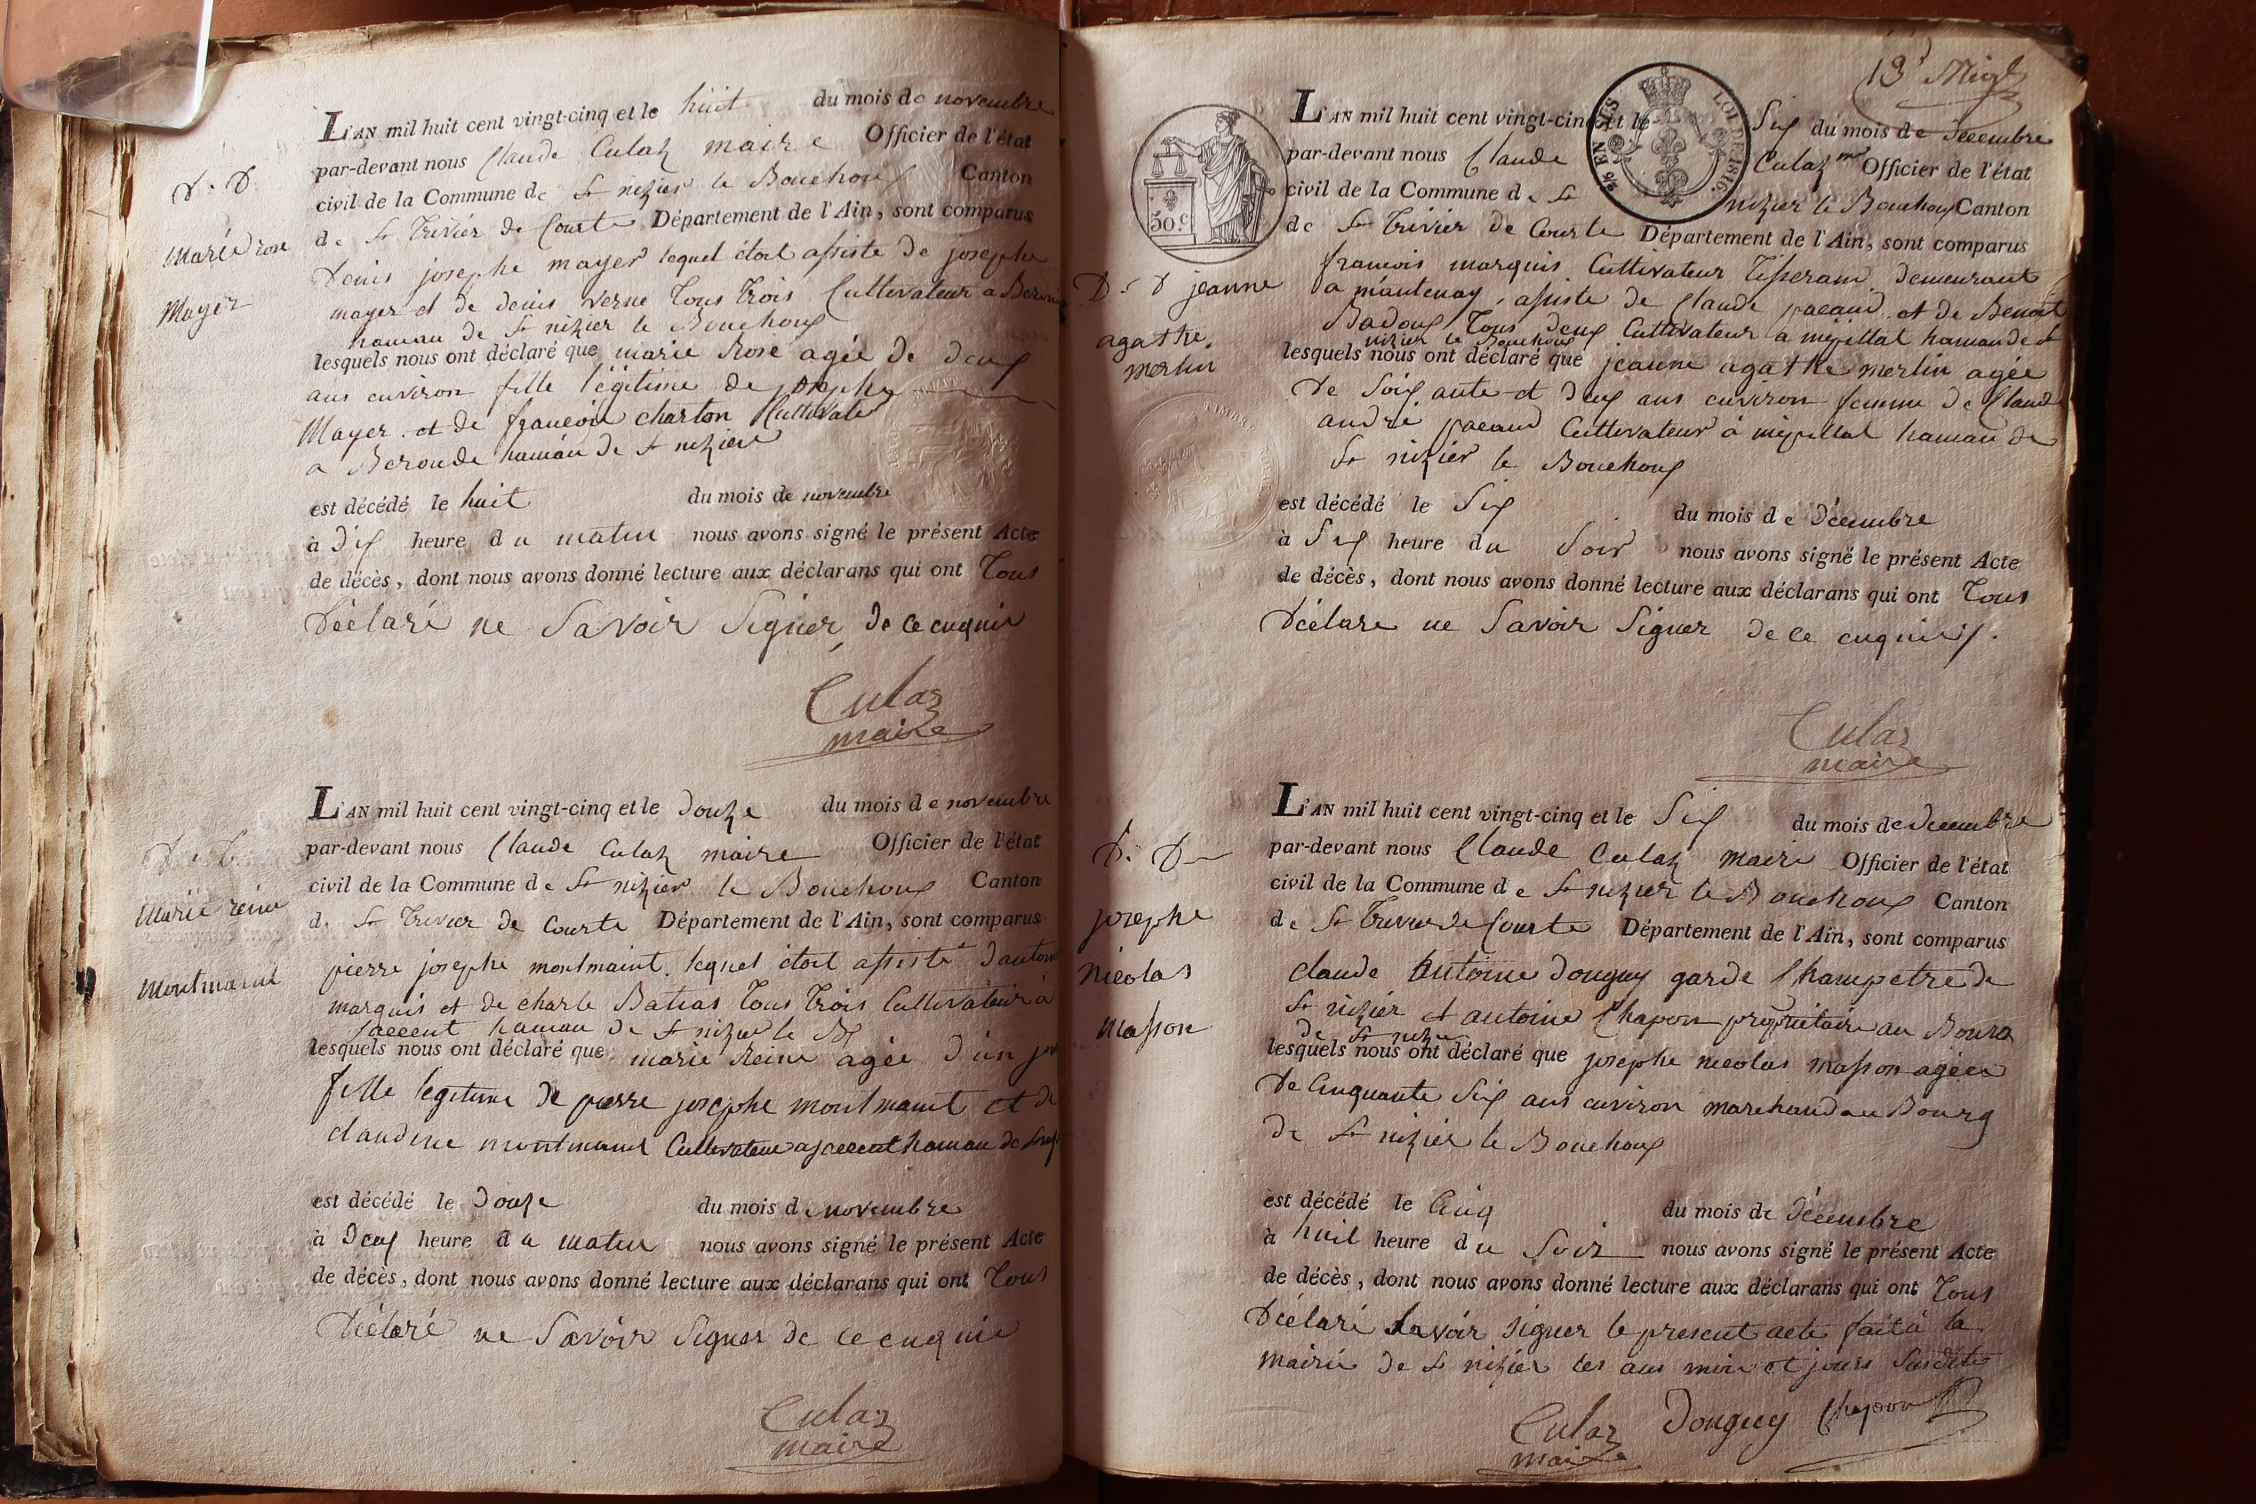 L'AN mil huit cent vingt-cinq et le huit du mois de novembre
par-devant nous Claude Culaz maire Officier de l'état
civil de la Commune de St nizier le Bouchoux Canton
de St Trivier de Courte Département de l'Ain, sont comparus
Denis josephe mayer lequel étoit assisté de josephe
mayer et de denis verne Tous Trois Cultivateur a
hameau de St nizier le Bouchoux
lesquels nous ont déclaré que marie Rose agée de deux
ans environ fille légitime de josephe
Mayer et de francoise charton Cultivate
a Beronde hameau de St nizier
est décédé le huit du mois de novembre
à dix heure du matin nous avons signé le présent Acte
de décès, dont nous avons donné lecture aux déclarans qui ont Tous
Déclaré ne Savoir Signer de ce enquis
Culaz
maire
D. D.
Marie rose
Mayer
L'AN mil huit cent vingt-cinq et le douze du mois de novembre
par-devant nous Claude Culaz maire Officier de l'état
civil de la Commune de St nizier le Bouchoux Canton
de St Trivier de Courte Département de l'Ain, sont comparus
pierre josephe montmaint lequel étoit assisté d'antoine
marquis et de charle Batias Tous Trois Cultivateur à
hameau de St nizier le
lesquels nous ont déclaré que marie Reine agée d'un
fille legitime de pierre josephe montmaint et de
claudine montmaint Cultivateur a hameau de
est décédé le douze du mois de novembre
à deux heure du matin nous avons signé le présent Acte
de décès, dont nous avons donné lecture aux déclarans qui ont Tous
Déclaré ne Savoir Signer de ce enquis
Culaz
maire
Marie reine
Montmaint
13
50 c.
EN SUS
LOI DE 1816.
L'AN mil huit cent vingt-cinq et le Six du mois de Décembre
par-devant nous Claude Culaz Officier de l'état
civil de la Commune de St nizier le Bouchoux Canton
de St Trivier de Courte Département de l'Ain, sont comparus
francois marquis Cultivateur Tisserand demeurant
a mantenay, assisté de Claude pacaud et de Benoit
Badoux Tous deux Cultivateur a mépillat hamau de St
nizier le Bouchoux
lesquels nous ont déclaré que jeanne agathe merlin agée
De Soixante et deux ans environ femme de Claude
andré pacaud Cultivateur à mépillat hamau de
St nizier le Bouchoux
est décédé le Six du mois de Décembre
à Six heure du Soir nous avons signé le présent Acte
de décès, dont nous avons donné lecture aux déclarans qui ont Tous
Déclare ne Savoir Signer de ce enquis
Culaz
maire
D. D jeanne
agathe
merlin
TIMBRE
L'AN mil huit cent vingt-cinq et le Six du mois de Decembre
par-devant nous Claude Culaz maire Officier de l'état
civil de la Commune de St nizier le Bouchoux Canton
de St Trivier de Courte Département de l'Ain, sont comparus
claude Antoine Donguy garde Champetre de
St nizier et antoine Chapon propriétaire au Bourg
de St nizier
lesquels nous ont déclaré que josephe nicolas masson agée
De Cinquante Six ans environ marchand au Bourg
de St nizier le Bouchoux
est décédé le Cinq du mois de Décembre
à huit heure du Soir nous avons signé le présent Acte
de décès, dont nous avons donné lecture aux déclarans qui ont Tous
Déclaré Savoir signer le present acte fait à la
mairie de St nizier les ans mois et jours Susdits
Culaz Donguy Chapon
maire
D. D
josephe
Nicolas
Masson